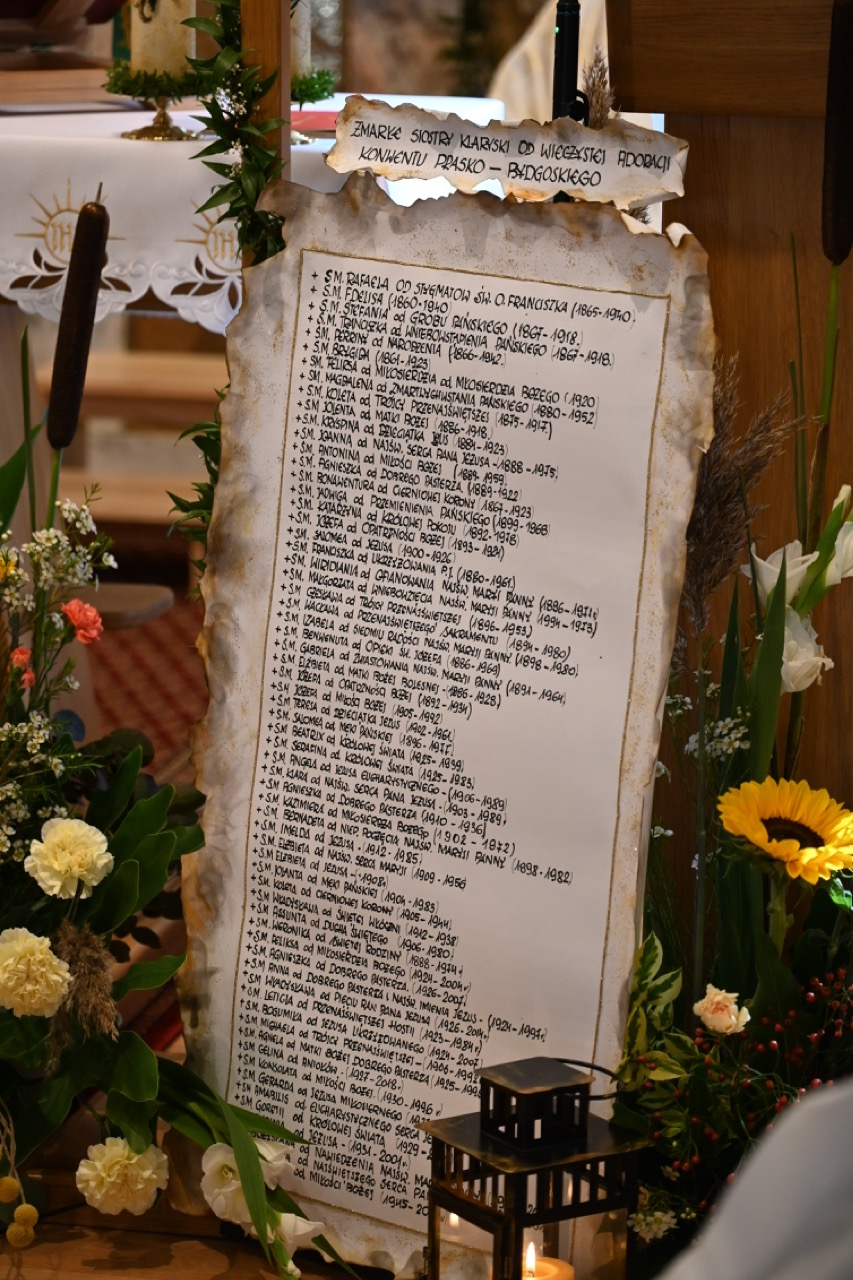 IHS
ZMARŁE SIOSTRY KLARYSKI OD WIECZYSTEJ ADORACJI
KONWENTU PRASKO – BYDGOSKIEGO
+ S.M. RAFAELA OD STYGMATÓW ŚW. O. FRANCISZKA (1865-1940)
+ S.M. FIDELISA (1860-1940)
+ S.M. STEFANIA od GROBU PAŃSKIEGO (1867-1918)
+ S.M. TRANCISZKA od WNIEBOWSTĄPIENIA PAŃSKIEGO (1867-1918)
+ S.M. PERRINE od NARODZENIA (1866-1942)
+ S.M. BRYGIDA (1861-1923)
+ SM. FELIKSA od MIŁOSIERDZIA od MIŁOSIERDZIA BOŻEGO (1920)
+ SM. MAGDALENA od ZMARTWYCHWSTANIA PAŃSKIEGO (1880-1952)
+ S.M. KOLETA od TRÓJCY PRZENAJŚWIĘTSZEJ (1875-1917)
+ S.M. JOLENTA od MATKI BOŻEJ (1886-1918)
+ S.M. KRYSPINA od DZIECIĄTKA JEZUS (1881-1923)
+ S.M. JOANNA od NAJŚW. SERCA PANA JEZUSA -1888-1975)
+ S.M. ANTONINA od MIŁOŚCI BOŻEJ (1884-1959)
+ S.M. AGNIESZKA od DOBREGO PASTERZA (1889-1922)
+ S.M. BONAWENTURA od CIERNIOWEJ KORONY (1867-1923)
+ S.M. JADWIGA od PRZEMIENIENIA PAŃSKIEGO (1899-1968)
+ S.M. KATARZYNA od KRÓLOWEJ POKOJU (1892-1978)
+ S.M. JÓZEFA od OPATRZNOŚCI BOŻEJ (1893-1931)
+ S.M. SALOMEA od JEZUSA (1900-1926)
+ S.M. FRANCISZKA od UKRZYŻOWANIA P.J. (1880-1961)
+ S.M. WIRIDIANA od OFIAROWANIA NAJŚW. MARYJI PANNY (1886-1971)
+ S.M. MAŁGORZATA od WNIEBOWZIĘCIA NAJŚW. MARYJI PANNY (1994-1973)
+ S.M CZESŁAWA od TRÓJCY PRZENAJŚWIĘTSZEJ (1896-1953)
+ S.M. WACŁAWA od PRZENAJŚWIĘTSZEGO SAKRAMENTU (1894-1980)
+ S.M. IZABELA od SIEDMIU RADOŚCI NAJŚW. MARYJI PANNY (1898-1980)
+ S.M. BENWENUTA od OPIEKI ŚW. JÓZEFA (1886-1969)
+ S.M. GABRIELA od ZWIASTOWANIA NAJŚW. MARYJI PANNY (1891-1964)
+ S.M. ELŻBIETA od MATKI BOŻEJ BOLESNEJ -1886-1928)
+ S.M. JÓZEFA od OPATRZNOŚCI BOŻEJ (1892-1931)
+ S.M JÓZEFA od MIŁOŚCI BOŻEJ (1905-1992)
+ S.M TERESA od DZIECIĄTKA JEZUS (1902-1961)
+ S.M. SALOMEA od MĘKI PAŃSKIEJ (1896-1977)
+ S.M. BEATRIX od KRÓLOWEJ ŚWIATA (1925-1959)
+ S.M. SERAFINA od KRÓLOWEJ ŚWIATA (1925-1983)
+ S.M. ANGELA od JEZUSA EUCHARYSTYCZNEGO - (1906-1989)
+ S.M. KLARA od NAJŚW. SERCA PANA JEZUSA - (1903-1989)
+ S.M AGNIESZKA od DOBREGO PASTERZA (1910-1936)
+ S.M. KAZIMIERA od MIŁOSIERDZIA BOŻEGO (1902-1972)
+ S.M. BERNADETA od NIEP. POCZĘCIA NAJŚW. MARYJI PANNY (1898-1982)
+ S.M. IMELDA od JEZUSA - (1912-1985)
+ S.M. ELŻBIETA od NAJŚW. SERCA MARYJI (1909-1956
+ S.M ELŻBIETA od JEZUSA - (1908)
+ S.M. KJANTA od MĘKI PAŃSKIEJ (1904-1983)
+ S.M. KOLETA od CIERNIOWEJ KORONY (1905-1944)
+ S.M WŁADYSŁAWA od ŚWIĘTEJ WŁÓCZNI (1912-1938)
+ S.M ASSUNTA od DUCHA ŚWIĘTEGO (1906-1980)
+ S.M. WERONIKA od ŚWIĘTEJ RODZINY (1888-1974)
+ S.M. FELIKSA od MIŁOSIERDZIA BOŻEGO (1924-2004r.)
+ S.M. AGNIESZKA od DOBREGO PASTERZA (1926-2007)
+ S.M ANNA od DOBREGO PASTERZA i NAJŚW. IMIENIA JEZUS - (1921-1997r.)
+ S.M WŁADYSŁAWA od PIĘCIU RAN PANA JEZUSA (1926-2014r.)
+ S.M. LETICJA od PRZENAJŚWIĘTSZEJ HOSTII (1923-1984r.)
+ S.M. BOGUMIŁA od JEZUSA UKRZYŻOWANEGO (1929-2007)
+ S.M. MICHAELA od TRÓJCY PRZENAJŚWIĘTSZEJ - (1906-1992
+ S.M. ANIELA od MATKI BOŻEJ DOBREGO PASTERZA (1925-1995
+ S.M. CELINA od ANIOŁÓW - (1927-2018r.)
+ S.M. KONSOLATA od MIŁOŚCI BOŻEJ. (1930-1996r.
+ S.M. GERARDA od JEZUSA MIŁOSIERNEGO
+ SM AMABILIS od EUCHARYSTYCZNEGO SERCA JE
+ S.M. GORETII od KRÓLOWEJ ŚWIATA (1929-2
JEZUSA - (1931-2001r.
od NAWIEDZENIA NAJŚW. MA
od NAJŚWIĘTSZEGO SERCA PA
od MIŁOŚCI BOŻEJ (1945-20